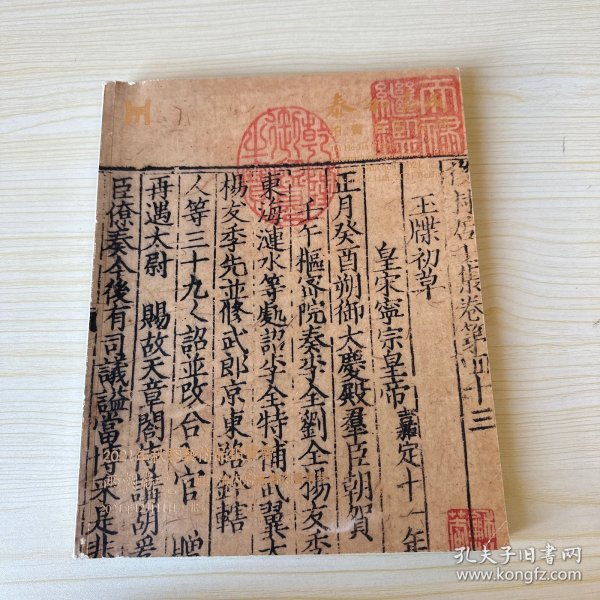 居士集卷第四十三
玉牒初草
皇宋寧宗皇帝 嘉定十一年
正月癸酉朔御大慶殿羣臣朝賀
壬午樞密院奏李全劉全楊友季
東海漣水等處詔李全特補武翼大
楊友季先並修武郎京東路鈐轄
人等三十九人詔並改合官 贈
再遇太尉 賜故天章閣待講胡爰
臣僚奏今後有司議謚當博采是非
天祿繼鑑
乾隆御覽之寶
泰
孔夫子旧书网
www.kongfz.com